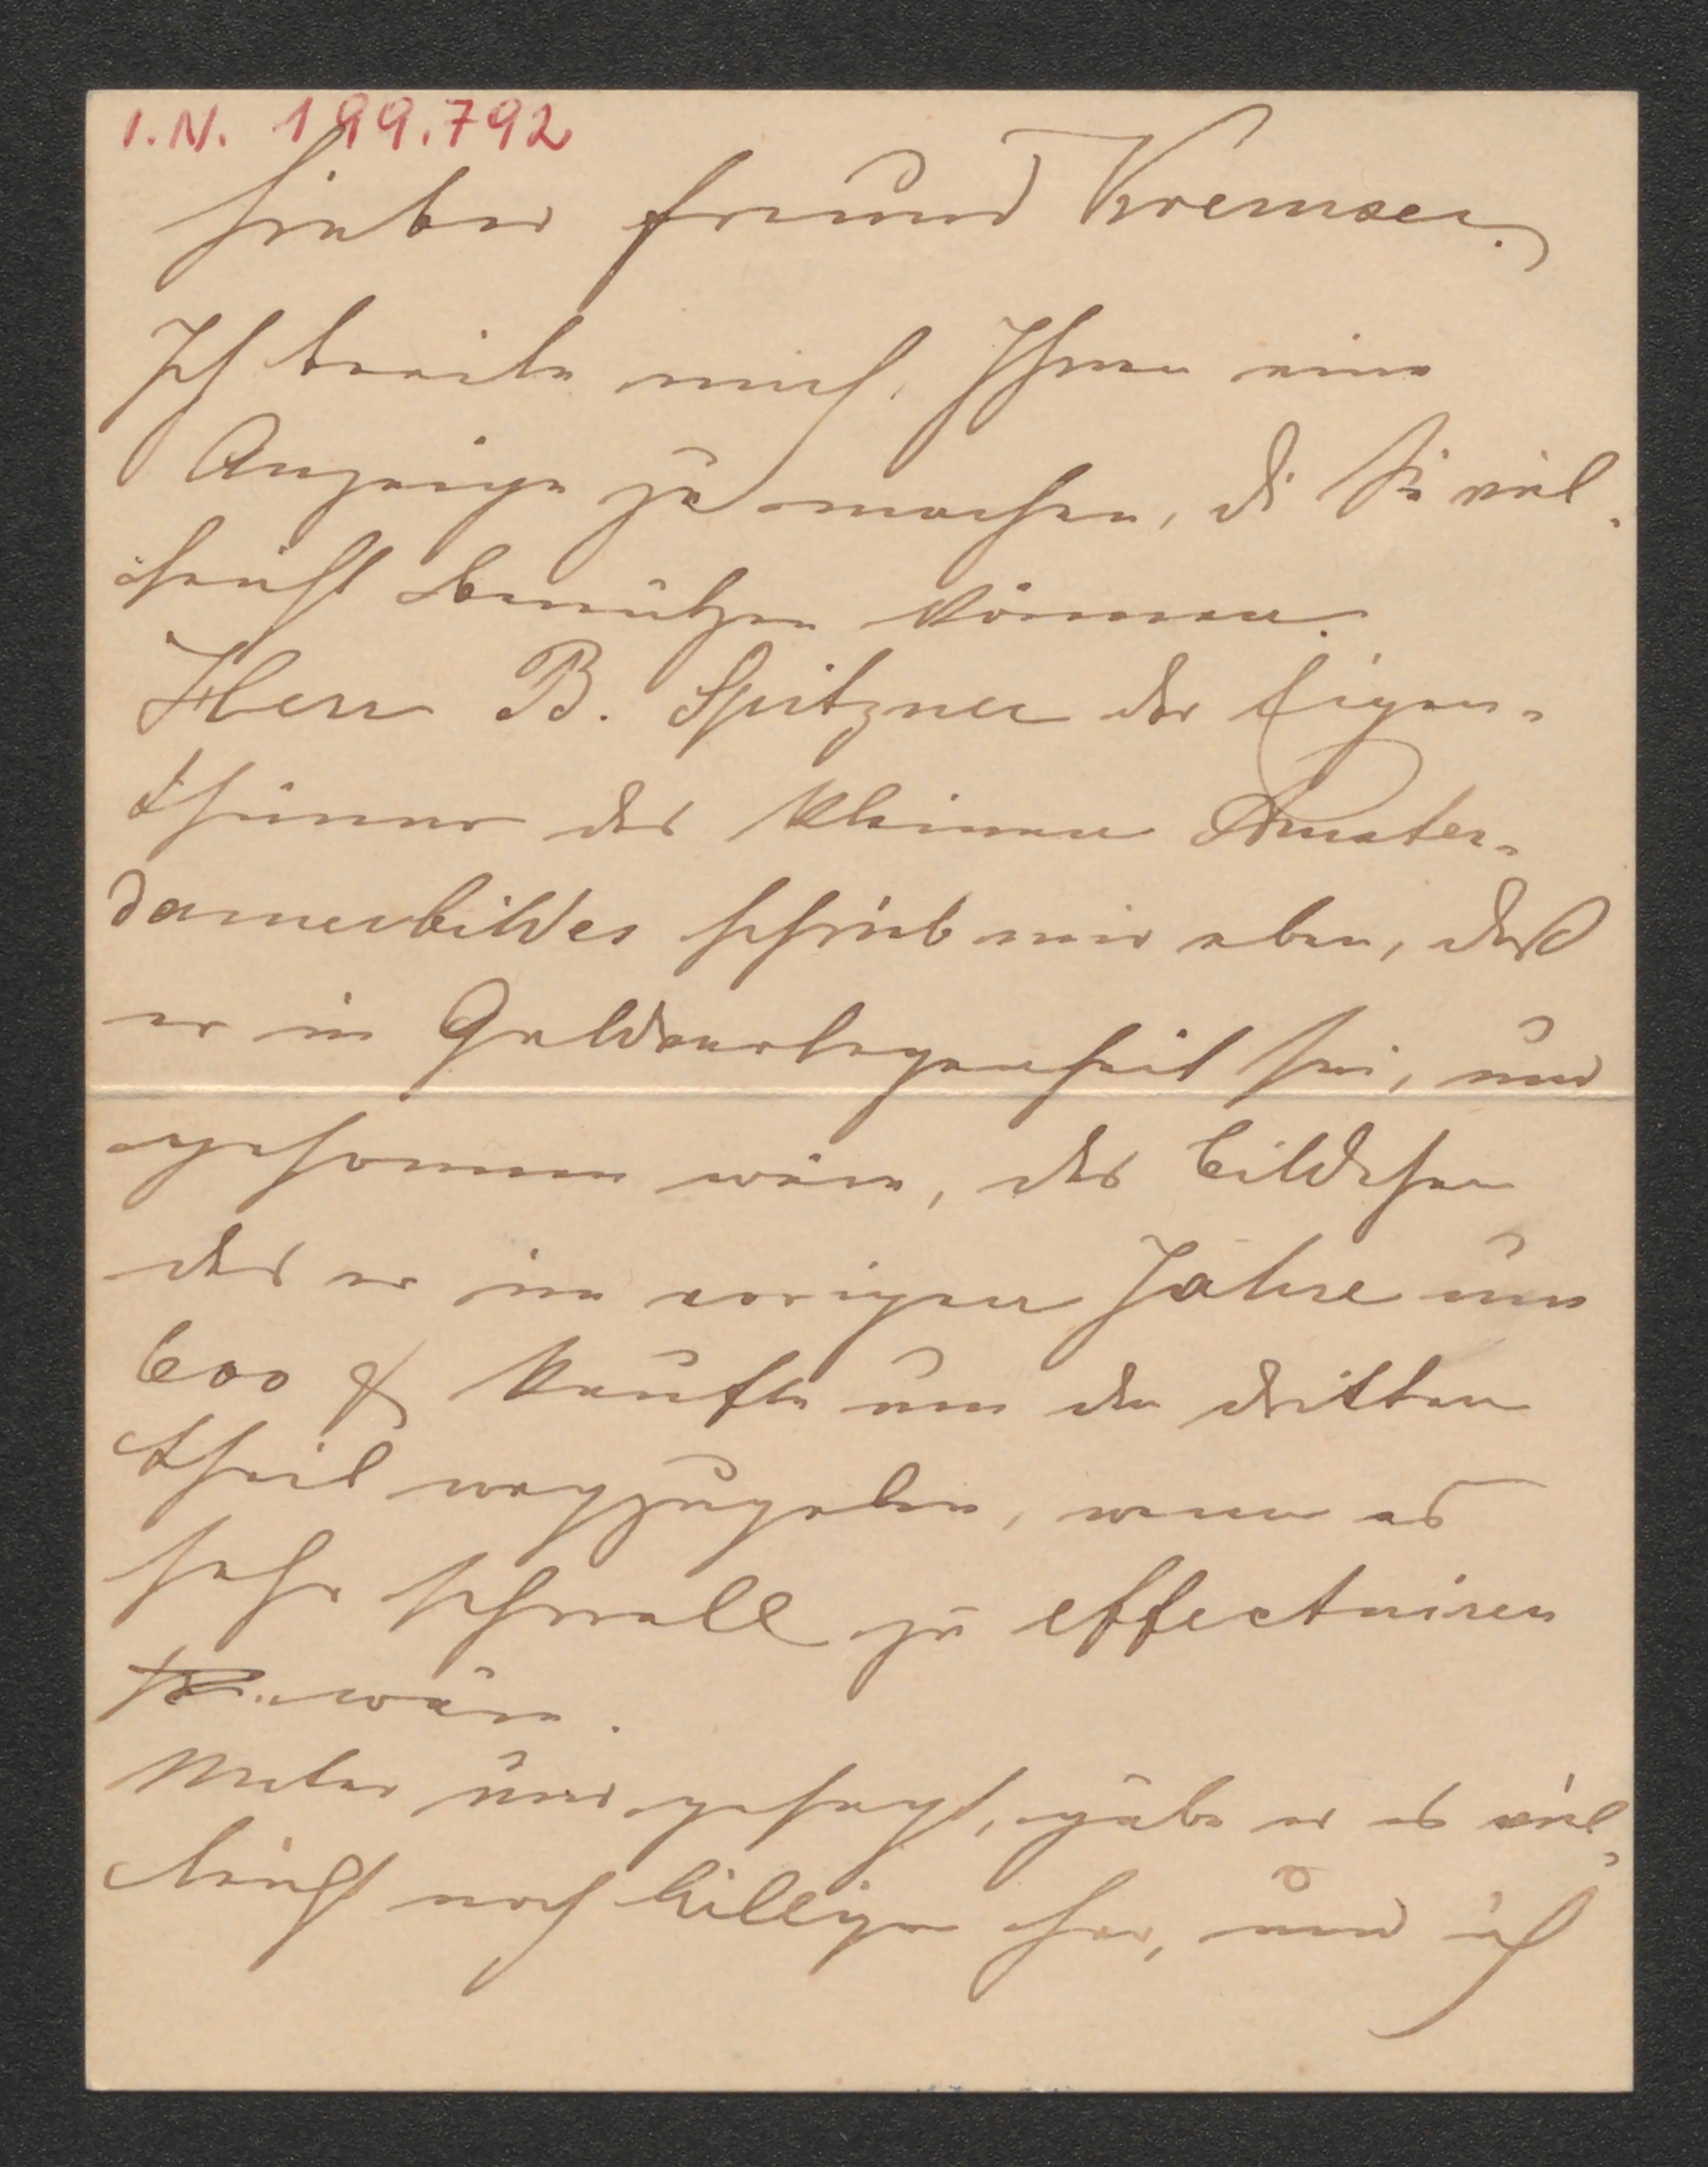 I.N. 199.792
Lieber Freund Kremser.
Ich beeile mich, Ihnen eine
Anzeige zu machen, die Sie viel-
leicht benützen können.
Herr B. Spitzner der Eigen-
thümer des kleinen Amster-
damerbildes schrieb mir eben, daß
er in Geldverlegenheit sei, und
gesonnen wäre, das Bildchen
das er im vorigen Jahre um
600 f kaufte um den dritten
Theil wegzugeben, wenn es
sehr schnell zu effectuiren
wäre.
Unter uns gesagt, gäbe er es viel-
leicht noch billiger her, und ich